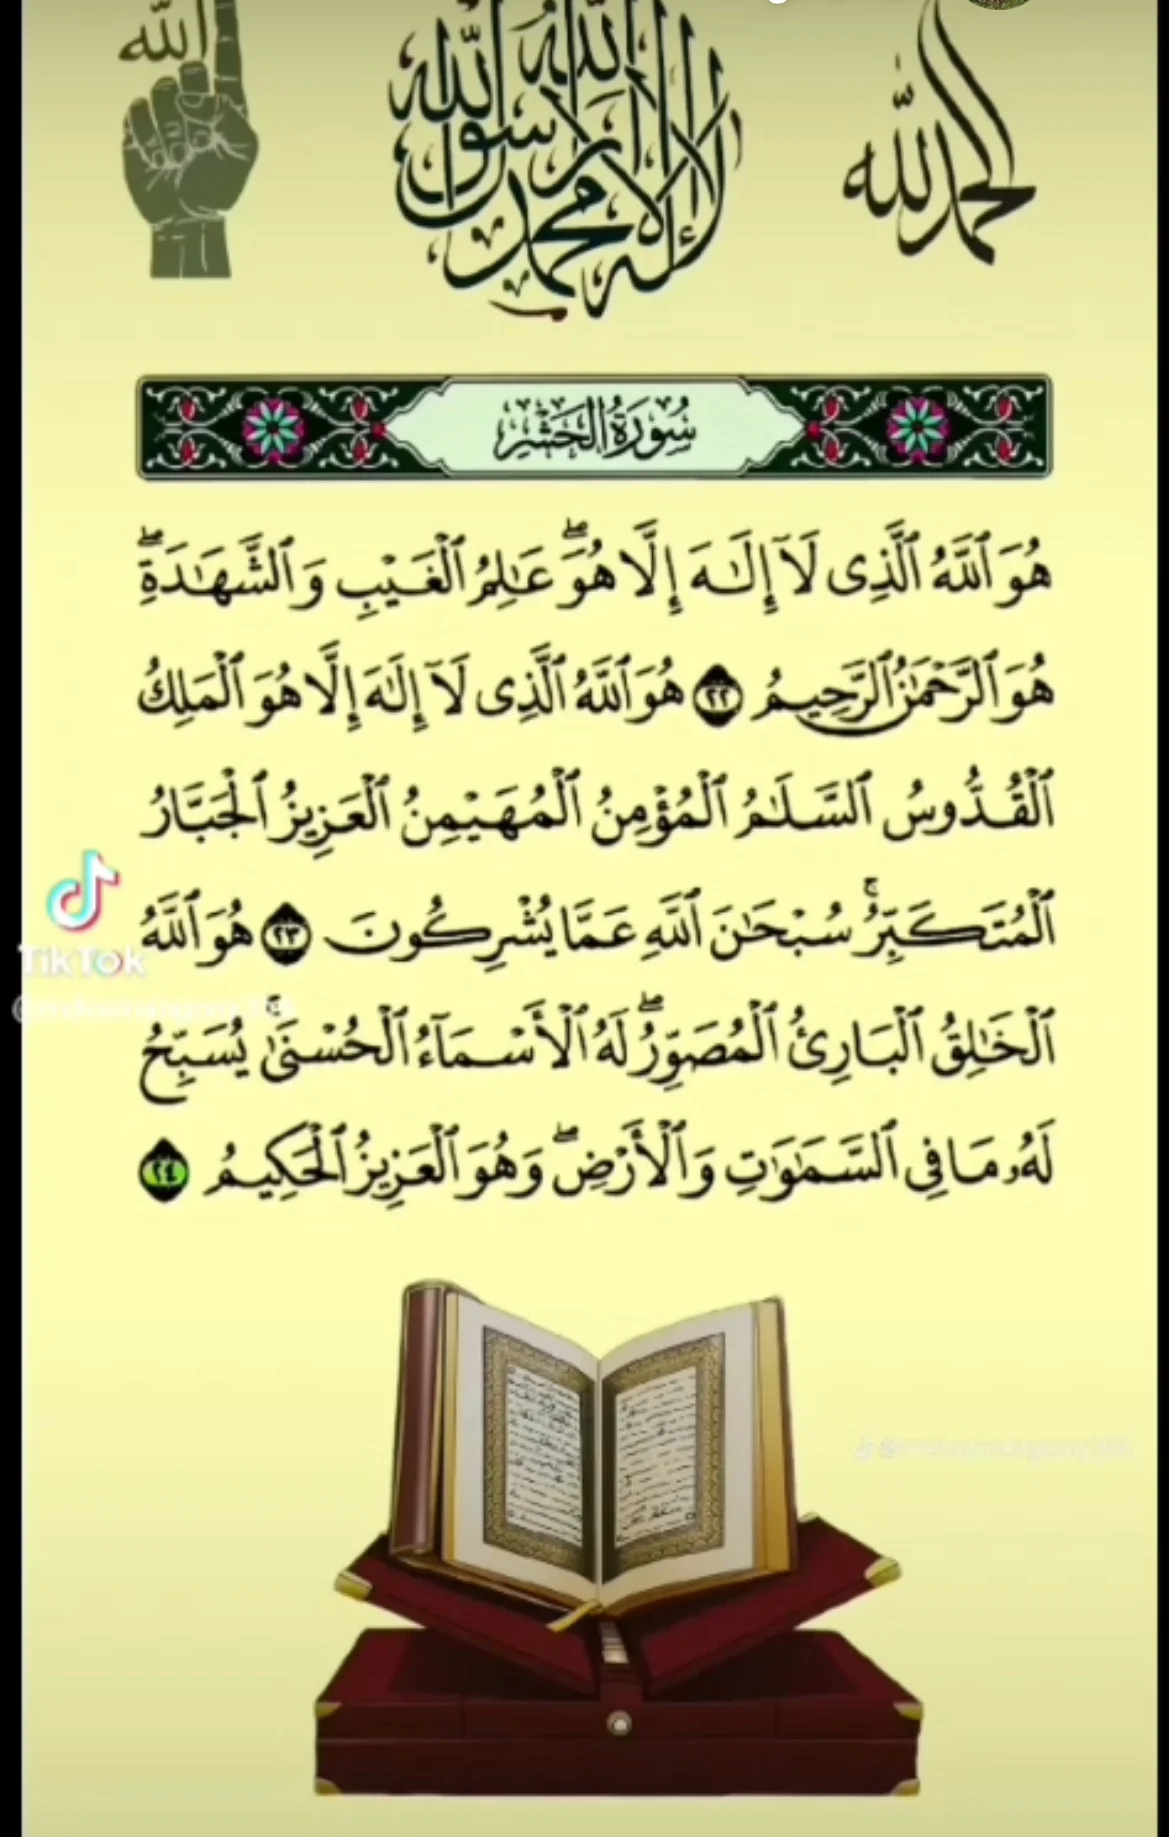 الله
لا إله إلا الله محمد رسول الله
الحمد لله
سُورَةُ الحَشْرِ
هُوَ ٱللَّهُ ٱلَّذِى لَآ إِلَـٰهَ إِلَّا هُوَۖ عَـٰلِمُ ٱلْغَيْبِ وَٱلشَّهَـٰدَةِۖ
هُوَ ٱلرَّحْمَـٰنُ ٱلرَّحِيمُ ٢٢ هُوَ ٱللَّهُ ٱلَّذِى لَآ إِلَـٰهَ إِلَّا هُوَ ٱلْمَلِكُ
ٱلْقُدُّوسُ ٱلسَّلَـٰمُ ٱلْمُؤْمِنُ ٱلْمُهَيْمِنُ ٱلْعَزِيزُ ٱلْجَبَّارُ
ٱلْمُتَكَبِّرُۚ سُبْحَـٰنَ ٱللَّهِ عَمَّا يُشْرِكُونَ ٢٣ هُوَ ٱللَّهُ
ٱلْخَـٰلِقُ ٱلْبَارِئُ ٱلْمُصَوِّرُۖ لَهُ ٱلْأَسْمَآءُ ٱلْحُسْنَىٰۚ يُسَبِّحُ
لَهُۥ مَا فِى ٱلسَّمَـٰوَٰتِ وَٱلْأَرْضِۖ وَهُوَ ٱلْعَزِيزُ ٱلْحَكِيمُ ٢٤
TikTok